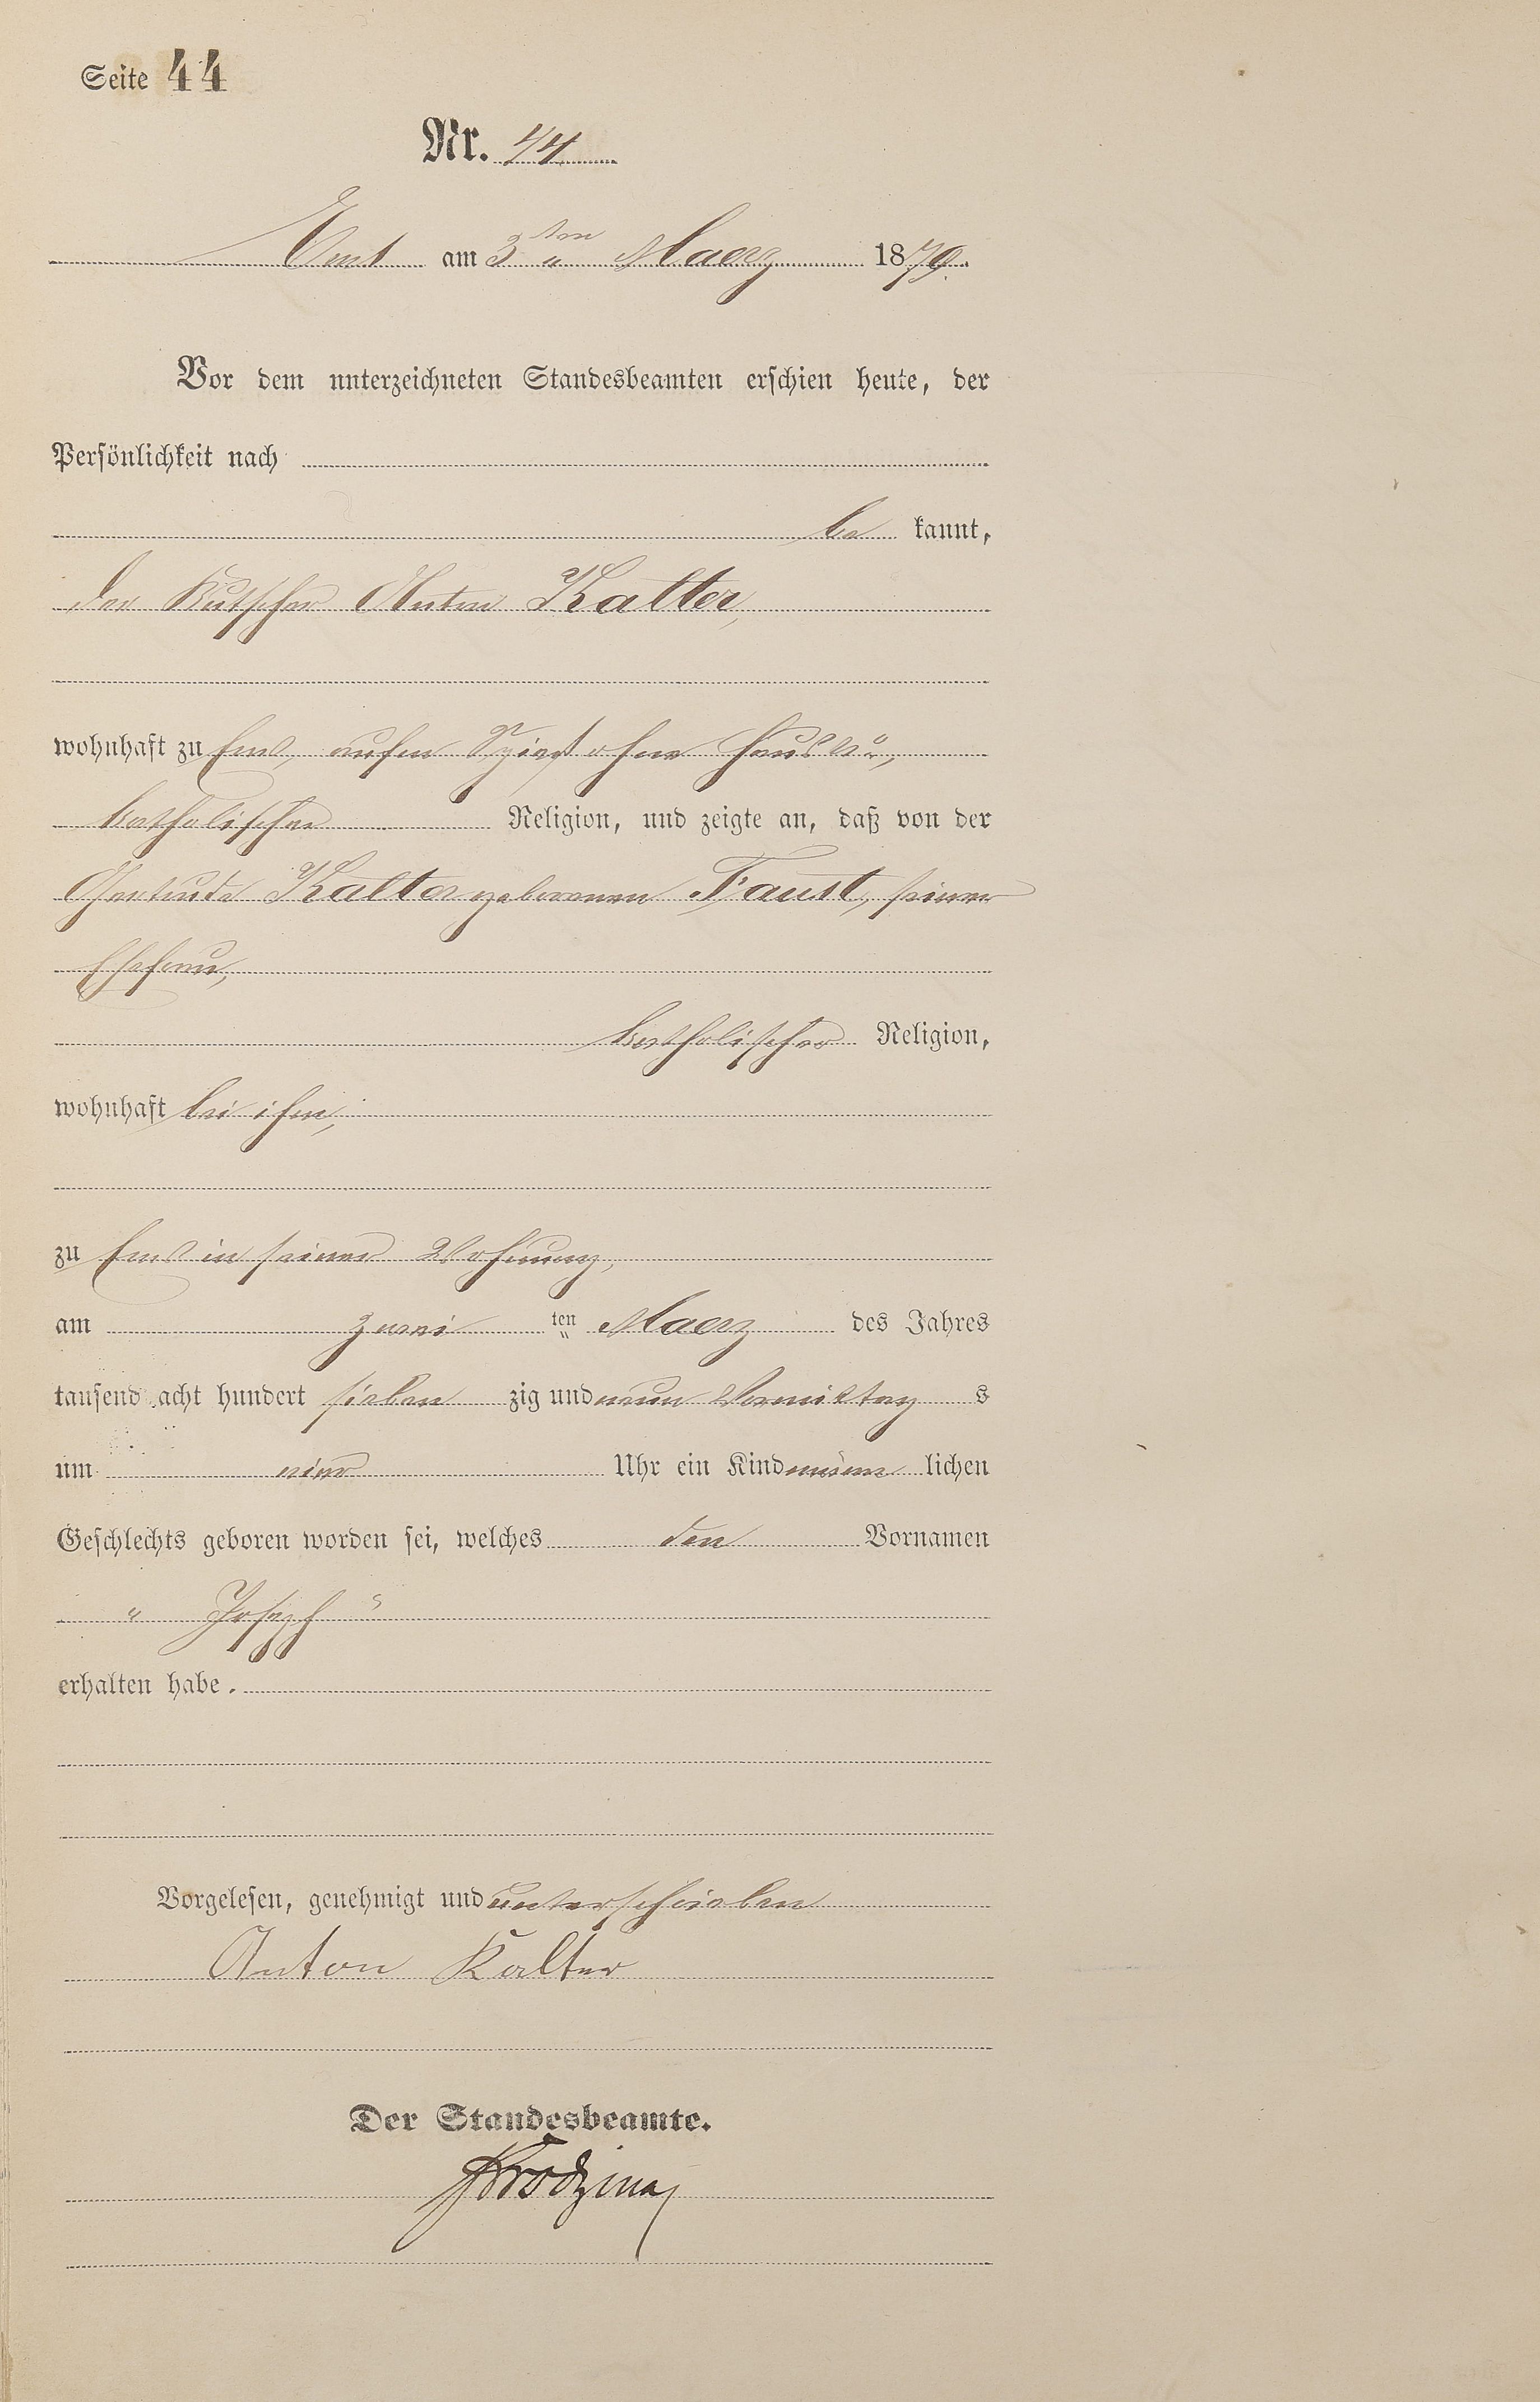 Seite 44
Nr. 44
Ems am 3ten Maerz 1879.
Vor dem unterzeichneten Standesbeamten erschien heute, der
Persönlichkeit nach
be kannt,
der Kutscher Anton Kalter,
wohnhaft zu Ems, auf'm Spieß ohne Haus No,
katholischer Religion, und zeigte an, daß von der
Gertrude Kalter geborenen Faust, seiner
Ehefrau,
katholischer Religion,
wohnhaft bei ihm,
zu Ems in seiner Wohnung,
am zwei ten Maerz des Jahres
tausend acht hundert sieben zig und neun Vormittag s
um Uhr ein Kind männ lichen
Geschlechts geboren worden sei, welches den Vornamen
" Joseph "
erhalten habe.
Vorgelesen, genehmigt und unterschrieben
Anton Kalter
Der Standesbeamte.